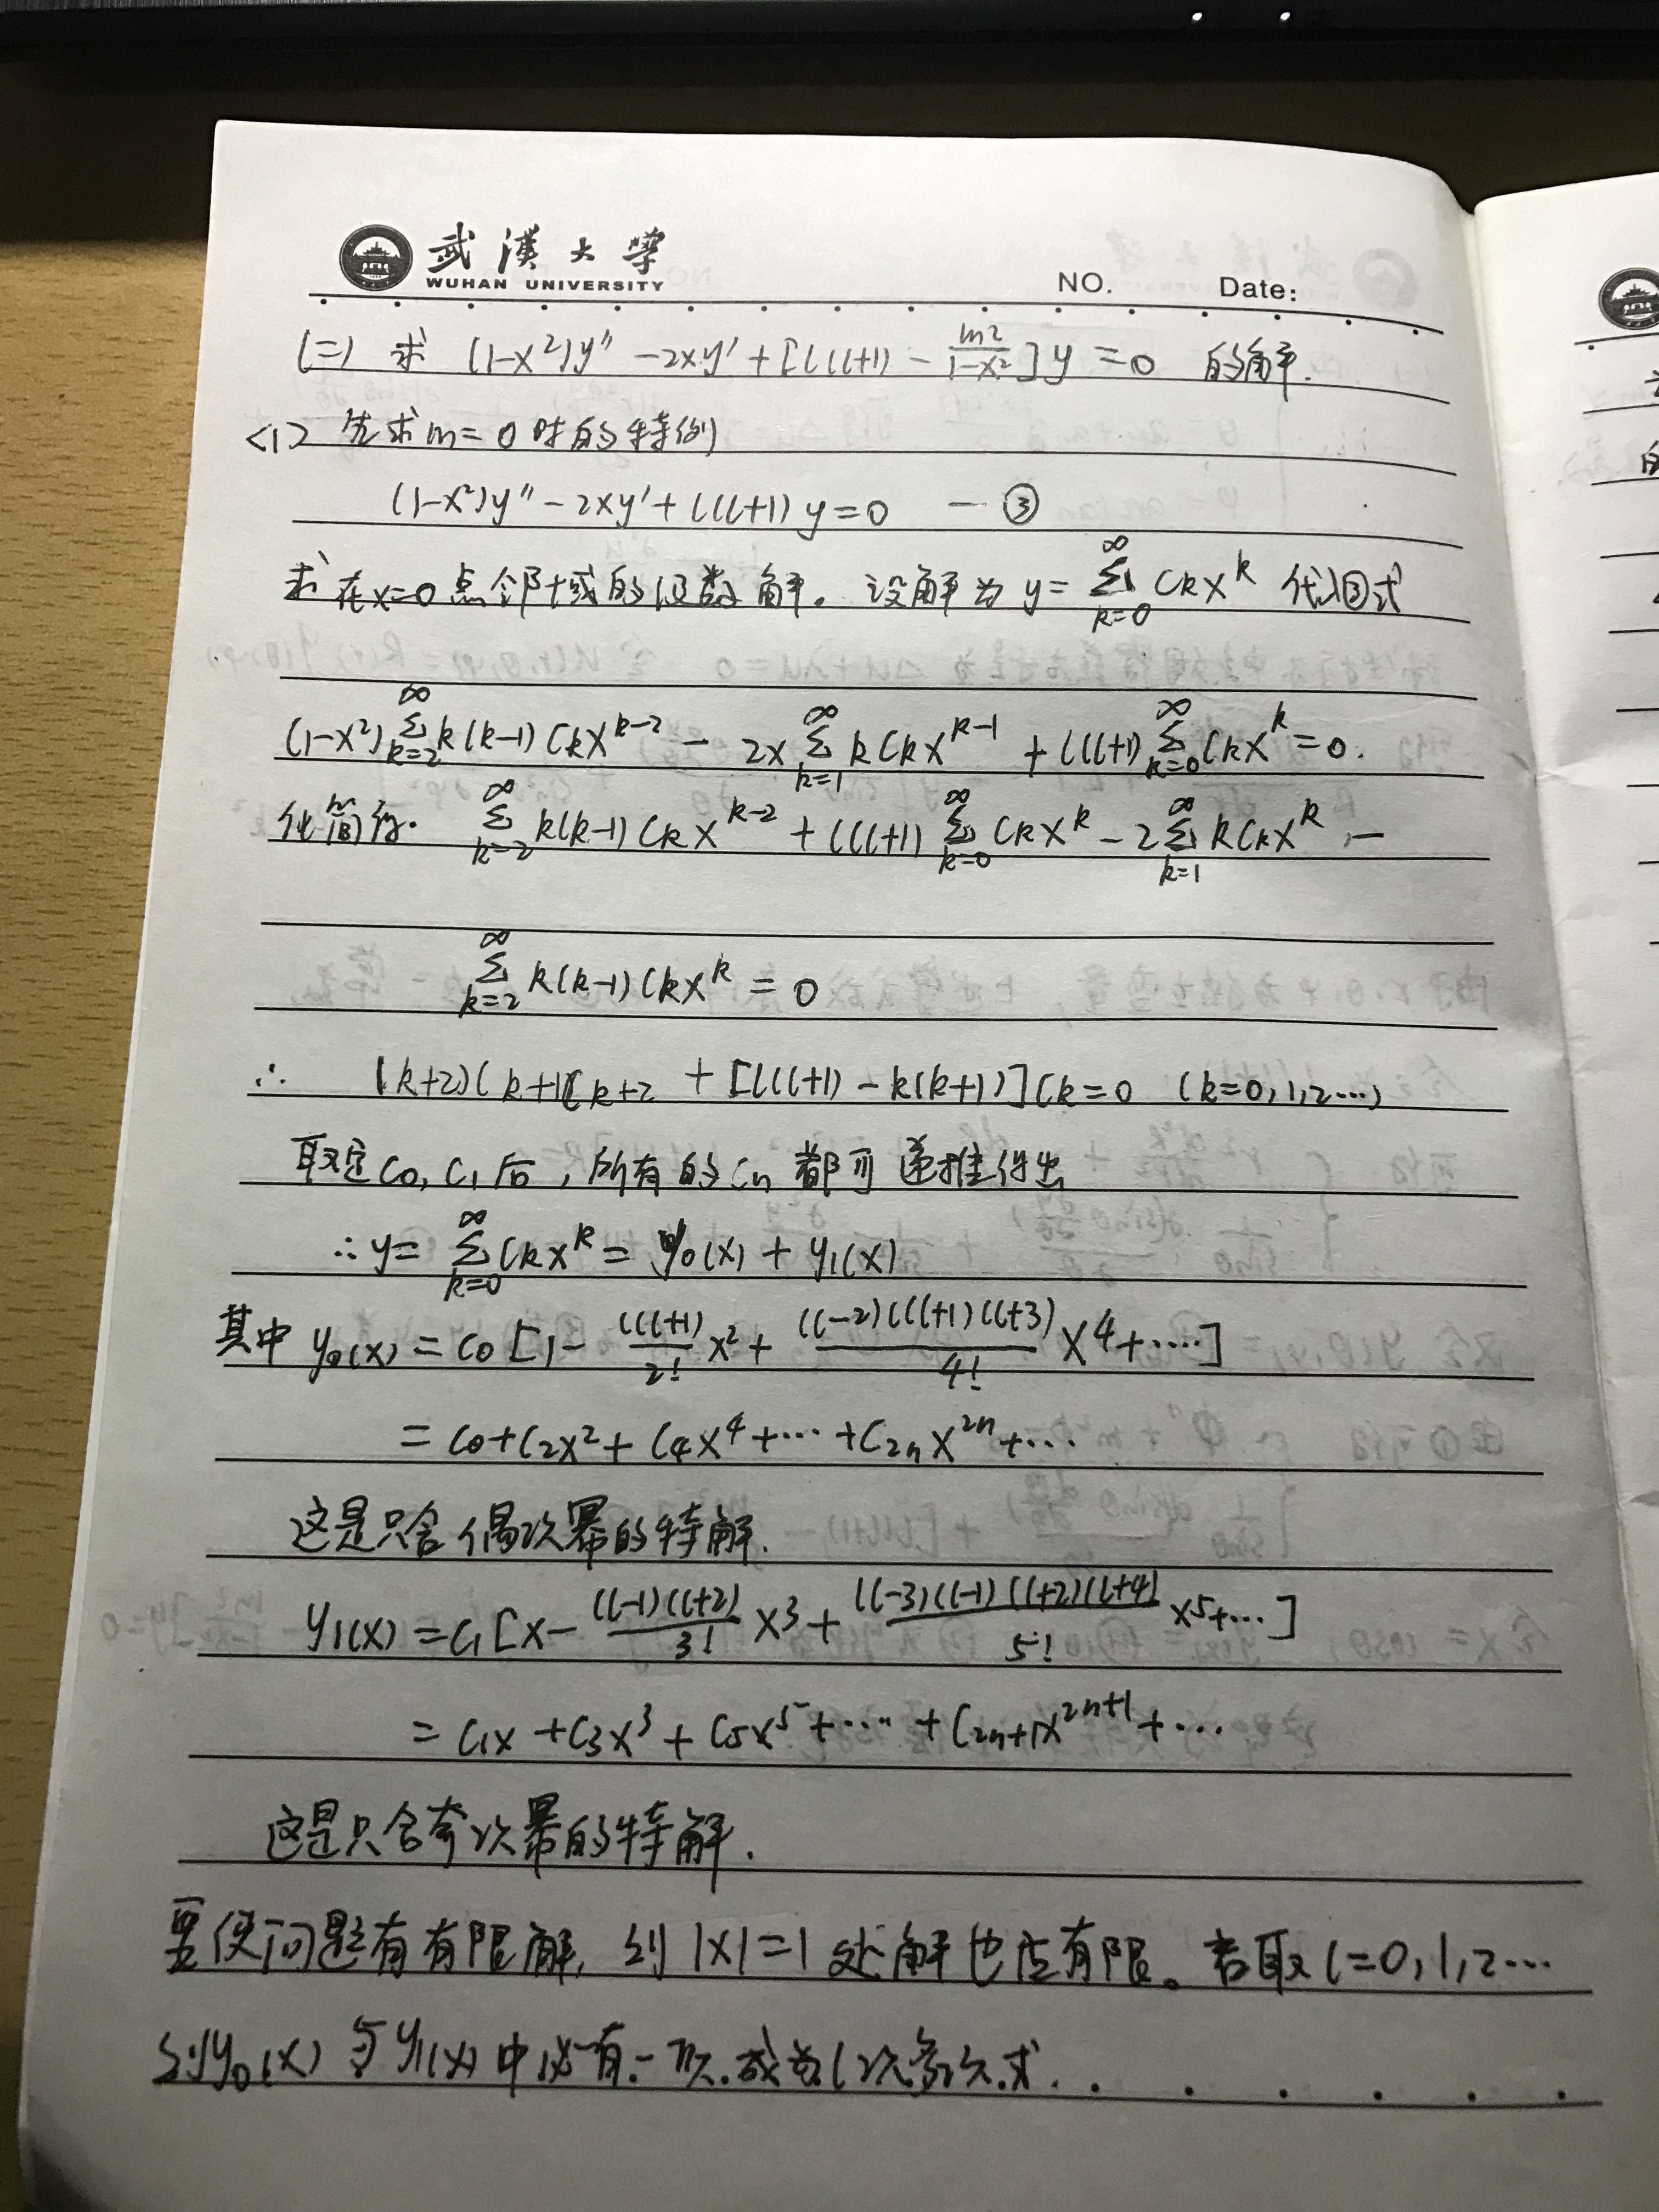 武漢大學
WUHAN UNIVERSITY
NO. Date:
(二) 求 (1-x²)y'' - 2xy' + [l(l+1) - m²/(1-x²)]y = 0 的解.
<1> 先求m=0时的特例
(1-x²)y'' - 2xy' + l(l+1)y = 0 — ③
求在x=0点邻域的级数解。设解为 y= ∑_{k=0}^{∞} C_k x^k 代入③式
(1-x²) ∑_{k=2}^{∞} k(k-1) C_k x^{k-2} - 2x ∑_{k=1}^{∞} k C_k x^{k-1} + l(l+1) ∑_{k=0}^{∞} C_k x^k = 0.
化简得. ∑_{k=2}^{∞} k(k-1) C_k x^{k-2} + l(l+1) ∑_{k=0}^{∞} C_k x^k - 2 ∑_{k=1}^{∞} k C_k x^k -
∑_{k=2}^{∞} k(k-1) C_k x^k = 0
∴ (k+2)(k+1)C_{k+2} + [l(l+1) - k(k+1)]C_k = 0 (k=0,1,2…)
取定C₀, C₁后, 所有的C_n都可递推得出
∴ y= ∑_{k=0}^{∞} C_k x^k = y₀(x) + y₁(x)
其中 y₀(x) = C₀ [1 - l(l+1)/2! x² + (l-2)l(l+1)(l+3)/4! x⁴ + ····]
= C₀+C₂x² + C₄x⁴ +··· +C_{2n}x^{2n}+···
这是只含偶次幂的特解.
y₁(x) = C₁ [x - (l-1)(l+2)/3! x³ + (l-3)(l-1)(l+2)(l+4)/5! x⁵+···]
= C₁x + C₃x³ + C₅x⁵ +···· + C_{2n+1}x^{2n+1} +···
这是只含奇次幂的特解.
要使问题有有限解, 则 |x|=1 处解也应有限。若取 l=0,1,2…
则y₀(x) 与 y₁(x) 中必有一项.成为l次多项式.